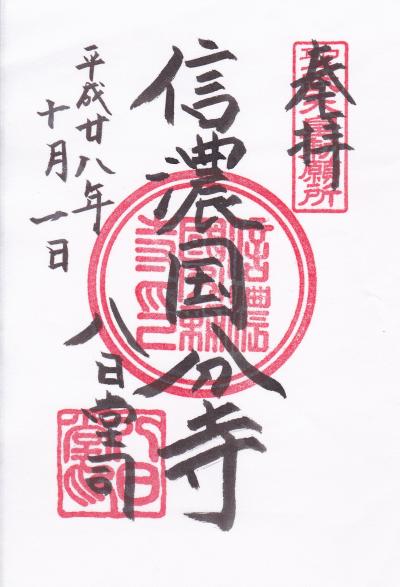 奉拝
信濃国分寺
八日堂司
平成廿八年
十月一日